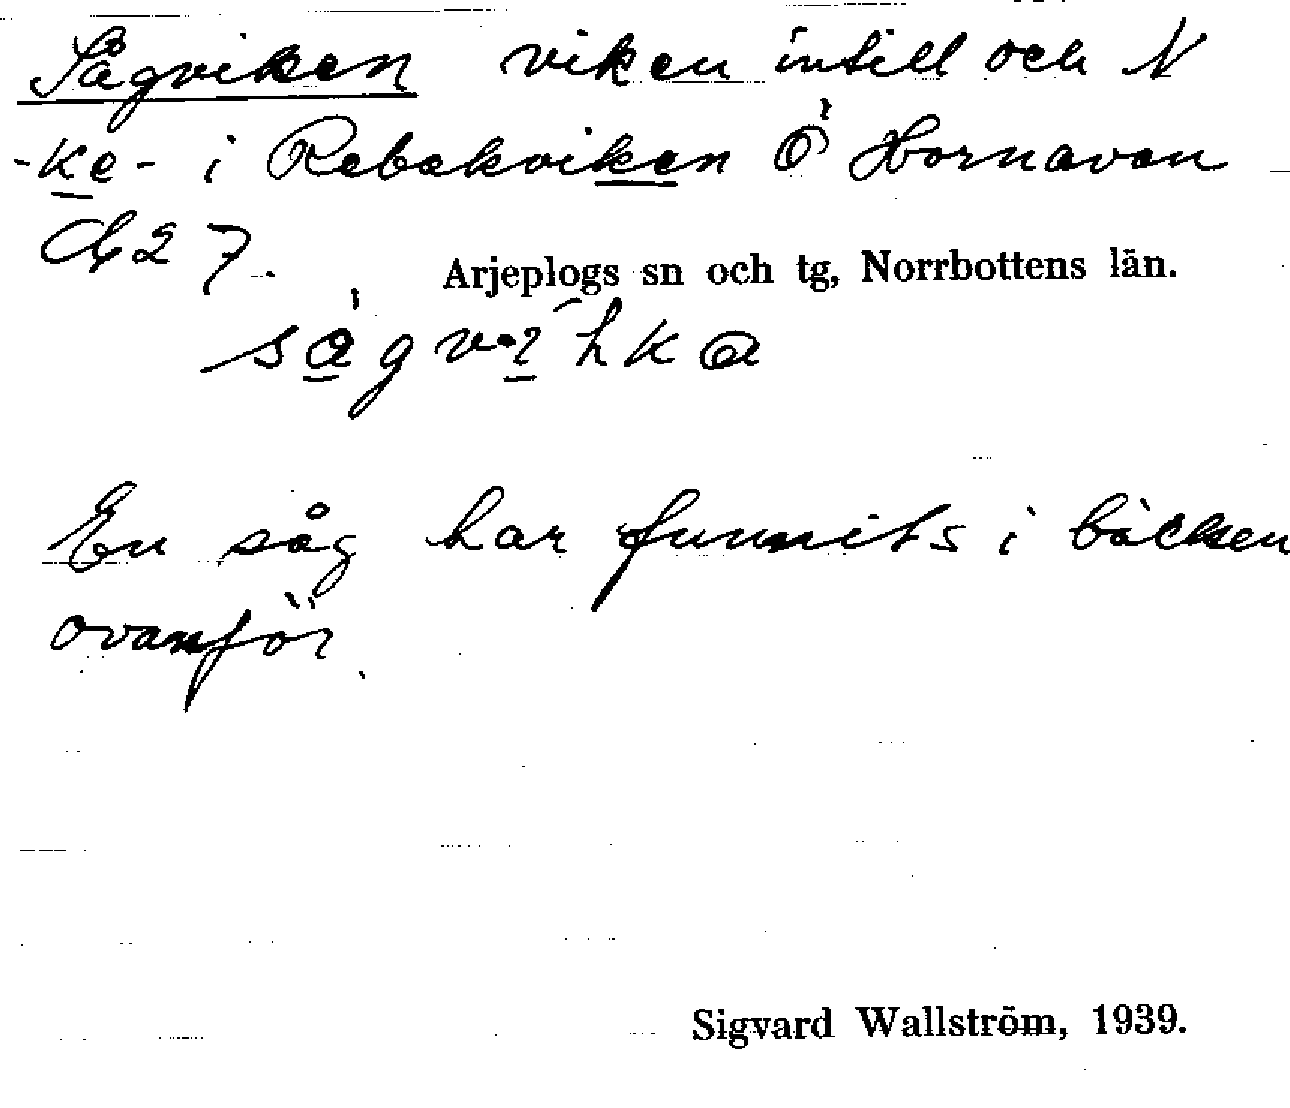 Sågviken viken intill och N
-ke- i Rebakviken Ö Hornavan
27.
Arjeplogs sn och tg, Norrbottens län.
En såg har funnits i bäcken
ovanför.
Sigvard Wallström, 1939.